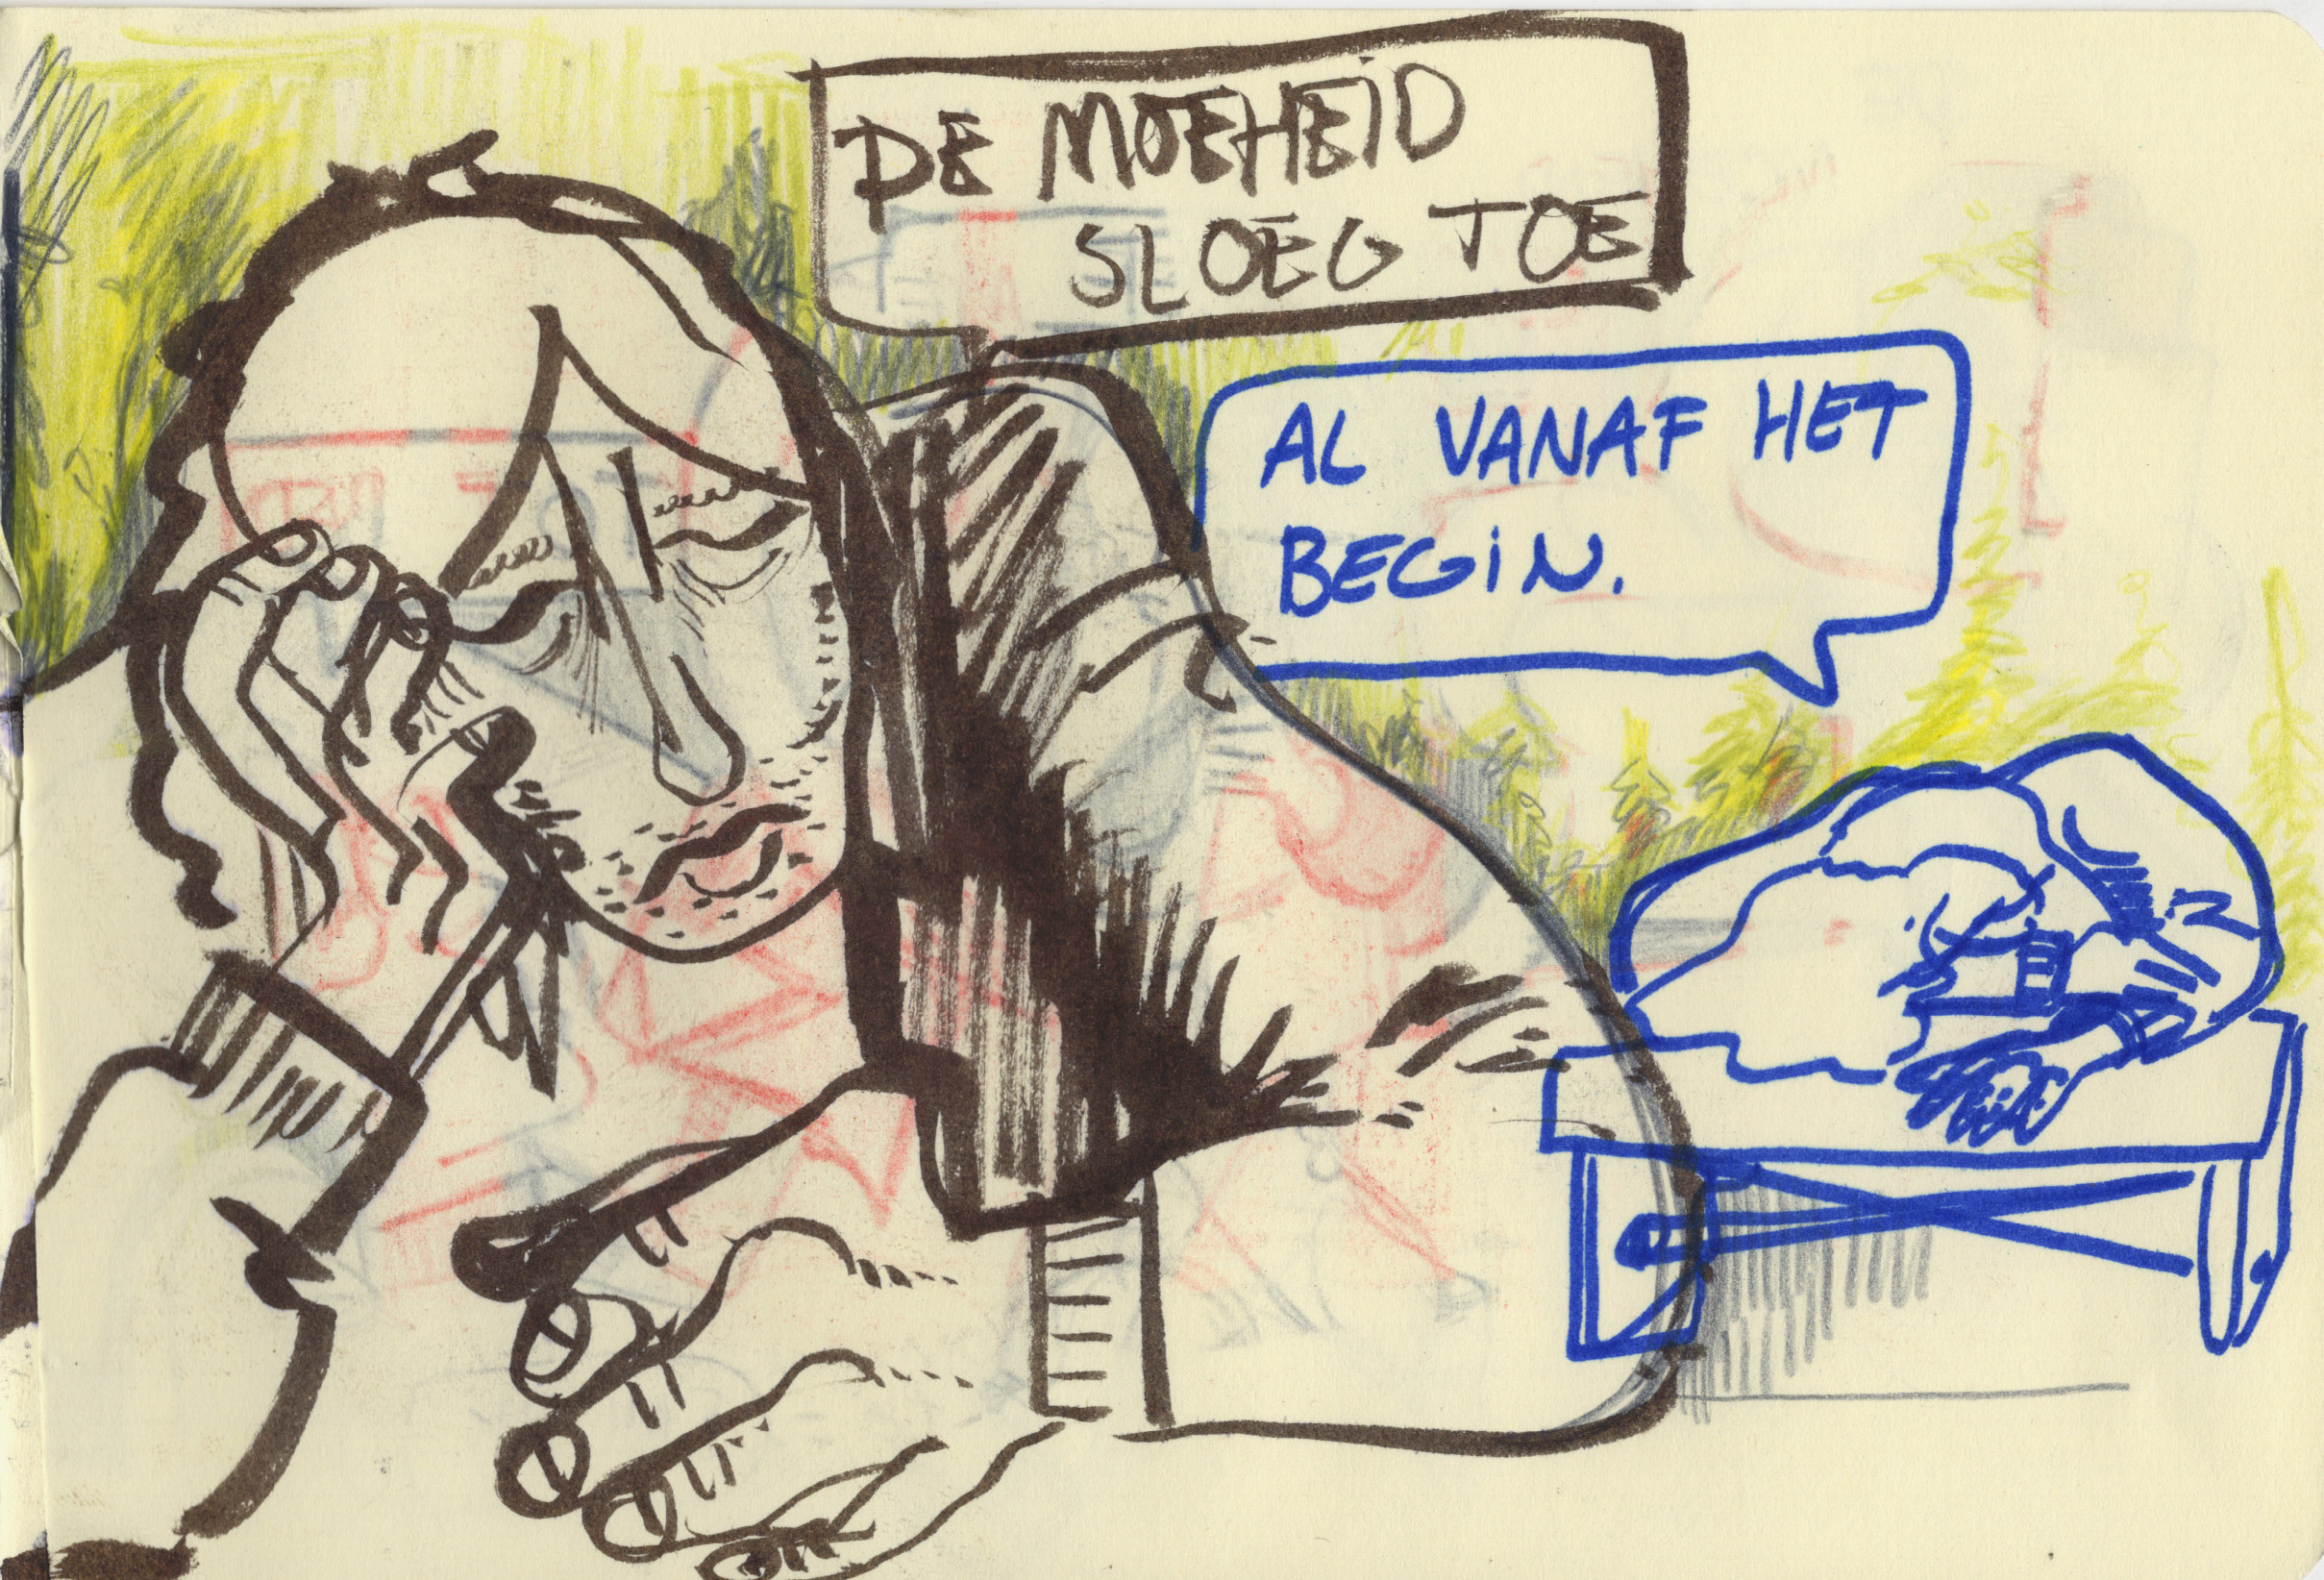 DE MOEHEID
SLOEG TOE
AL VANAF HET
BEGIN.